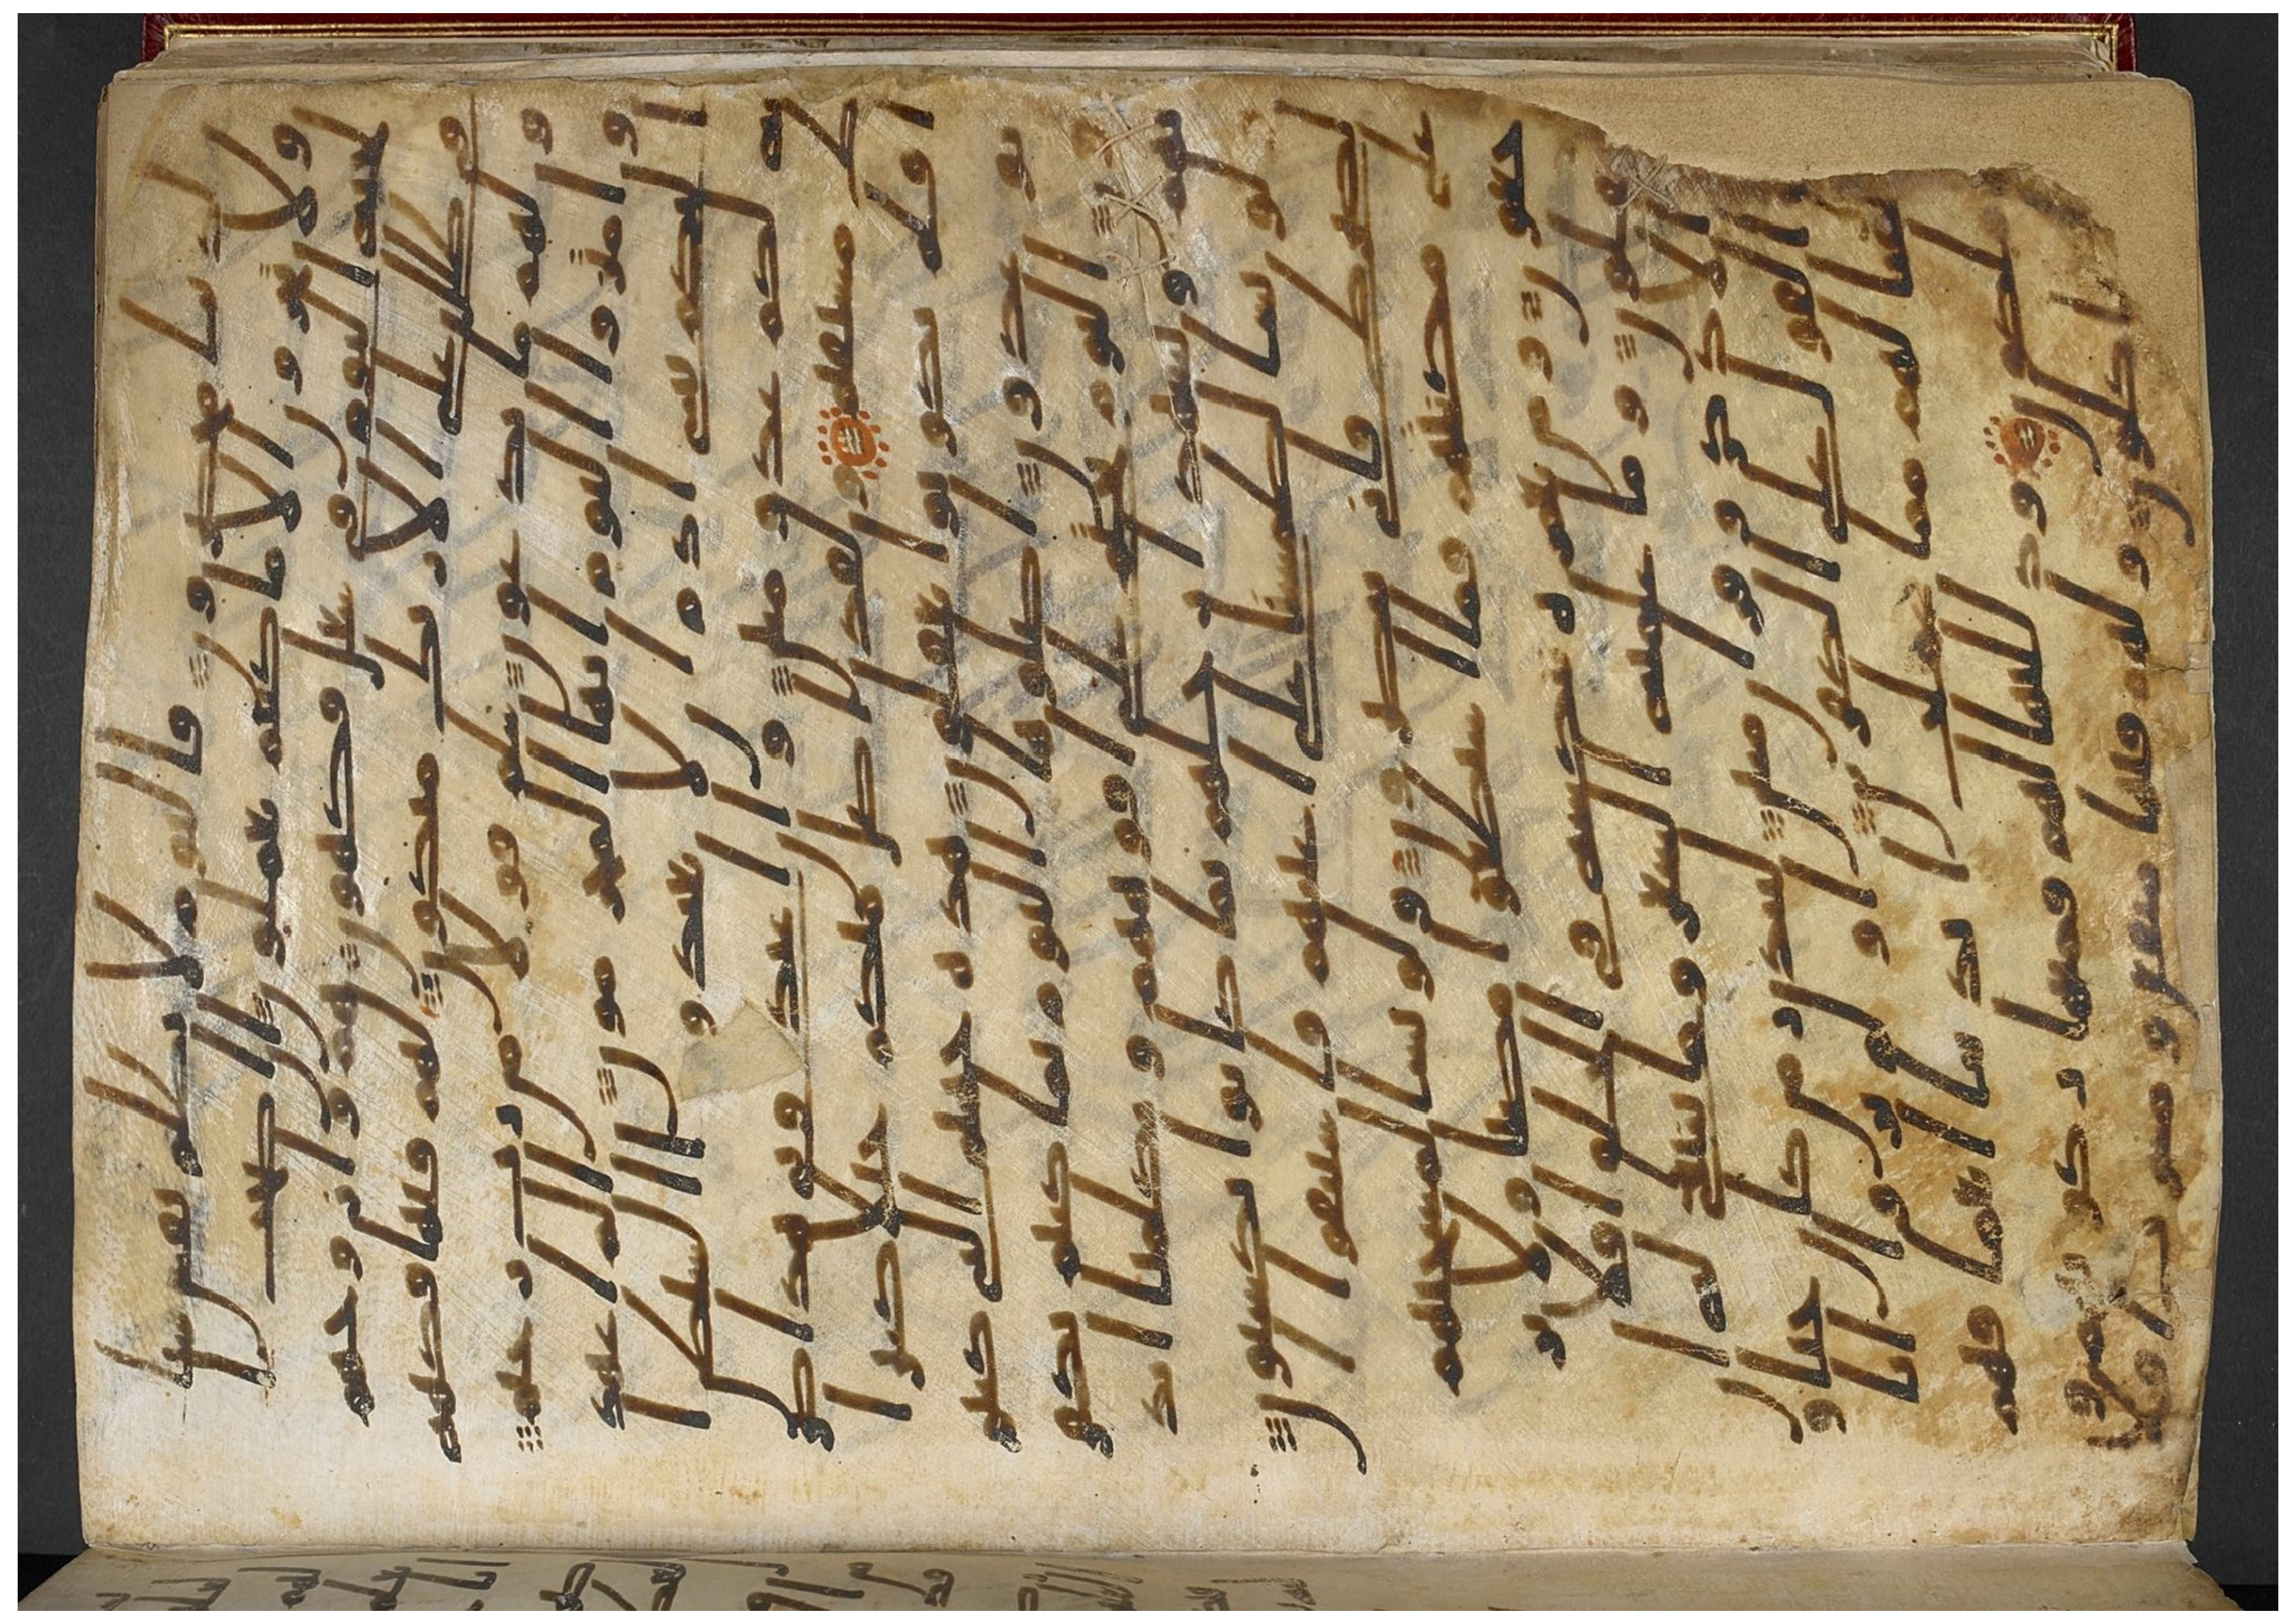 لدينا محضرون فاليوم لا تظلم نفس شيا
ولا تجزون الا ما كنتم تعملون ان اصح
ب الجنه اليوم في شغل فكهون هم وازوجهم
في ظلل على الارئك متكون لهم فيها فكهه
ولهم ما يدعون سلم قولا من رب رحيم
وامتزوا اليوم ايها المجرمون الم اعهد
اليكم يبني ادم ان لا تعبدوا الشيطن ا
نه لكم عدو مبين وان اعبدوني هذا صرط
مستقيم ولقد اضل منكم جبلا كثيرا
افلم تكونوا تعقلون هذه جهنم التي كنتم
توعدون اصلوها اليوم بما كنتم تكفرو
ن اليوم نختم على افوههم وتكلمنا ايد
يهم وتشهد ارجلهم بما كانوا يكسبون
ولو نشا لطمسنا على اعينهم فاستبقوا ا
لصرط فانى يبصرون ولو نشا لمسخنهم
على مكنتهم فما استطعوا مضيا ولا ير
جعون ومن نعمره ننكسه في الخلق افلا
يعقلون وما علمنه الشعر وما ينبغي له ا
ن هو الا ذكر وقران مبين لينذر من كان حيا و
يحق القول على الكفرين اولم يروا انا
خلقنا لهم مما عملت ايدينا انعما فهم
لها ملكون وذللنها لهم فمنها ركوبهم و
منها ياكلون ولهم فيها منفع ومشرب افلا